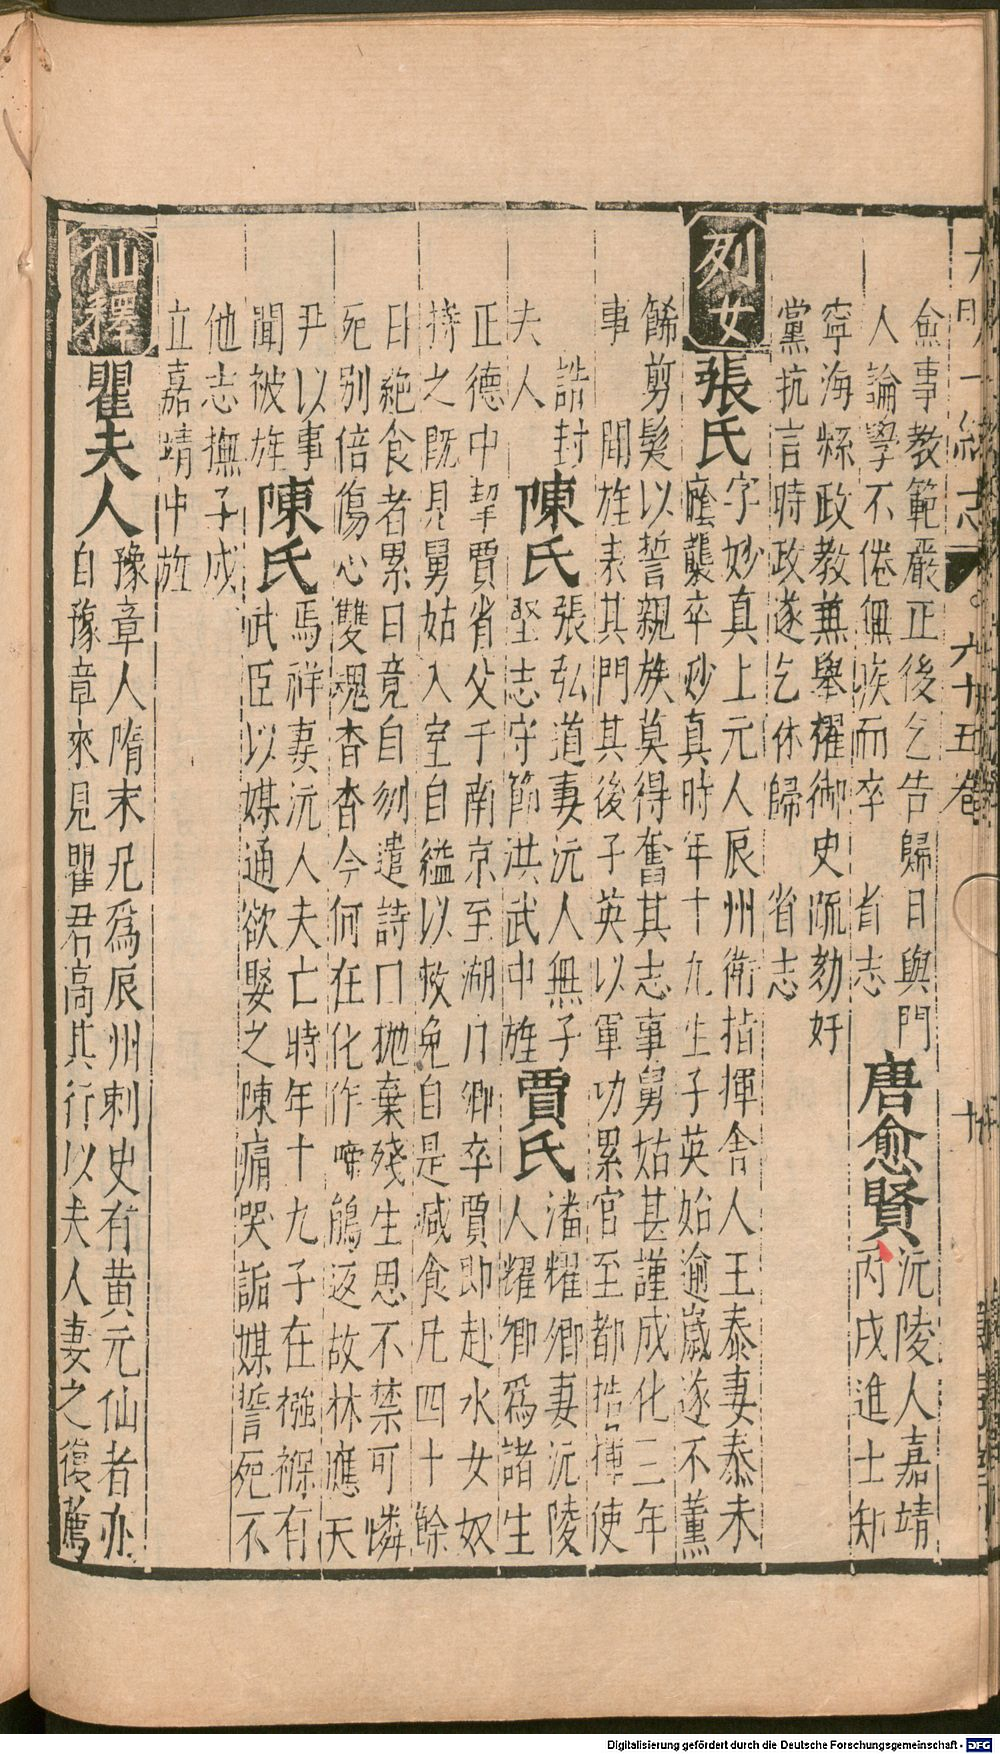 大明一統志 六十五卷
僉事教範嚴正後乞告歸日與門
人論學不倦無疾而卒 省志
唐愈賢
沅陵人嘉靖
丙戌進士知
寧海縣政教兼舉擢御史疏劾奸
黨抗言時政遂乞休歸 省志
列女
張氏
字妙真上元人辰州衛指揮舍人王泰妻泰未
廕襲卒妙真時年十九生子英始逾歲遂不薰
餙剪髮以誓親族莫得奮其志事舅姑甚謹成化三年
事 聞旌表其門其後子英以軍功累官至都指揮使
誥封
夫人
陳氏
張弘道妻沅人無子
堅志守節洪武中旌
賈氏
潘耀卿妻沅陵
人耀卿為諸生
正德中挈賈省父于南京至湖口卿卒賈即赴水女奴
持之既見舅姑入室自縊以救免自是減食凡四十餘
日絕食者累日竟自刎遺詩曰拋棄殘生思不禁可憐
死別倍傷心雙魂杳杳今何在化作啼鵑返故林應天
尹以事
聞被旌
陳氏
馬祥妻沅人夫亡時年十九子在襁褓有
武臣以媒通欲娶之陳痛哭詬媒誓死不
他志撫子成
立嘉靖中旌
仙釋
瞿夫人
豫章人隋末兄為辰州刺史有黃元仙者亦
自豫章來見瞿君高其行以夫人妻之復薦